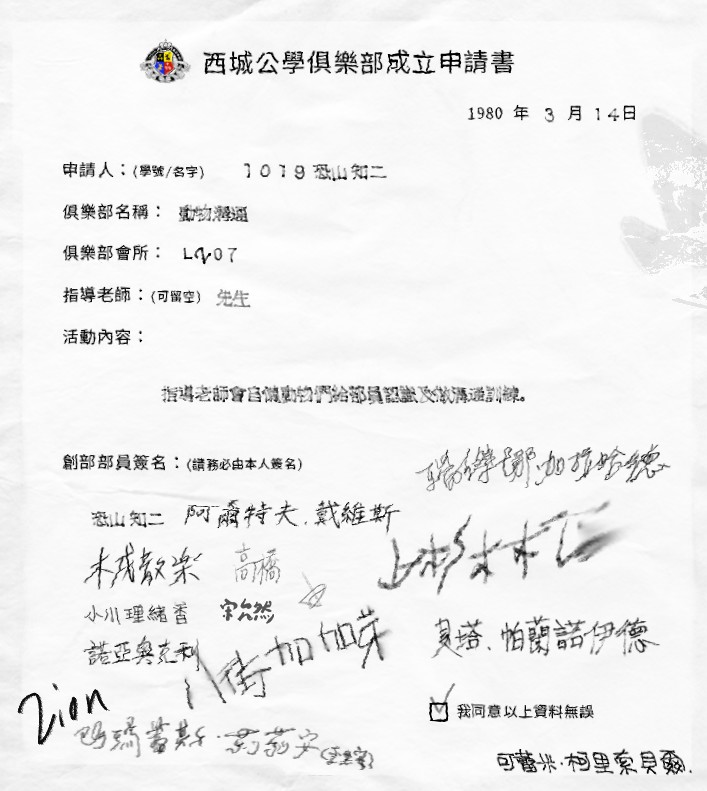 西城公學俱樂部成立申請書
1980 年 3 月 14日
申請人：(學號/名字) 1019 恐山知二
俱樂部名稱： 動物溝通
俱樂部會所： L207
指導老師：(可留空) 先生
活動內容：
指導老師會自備動物們給部員認識及做溝通訓練。
創部部員簽名：(請務必由本人簽名)
恐山知二 阿爾特夫.戴維斯
高橋
小川理緒香 宋允然
諾亞奧克利
八街加加芽
貝塔、帕蘭諾伊德
Zion
我同意以上資料無誤
可蕾米·柯里索貝爾.